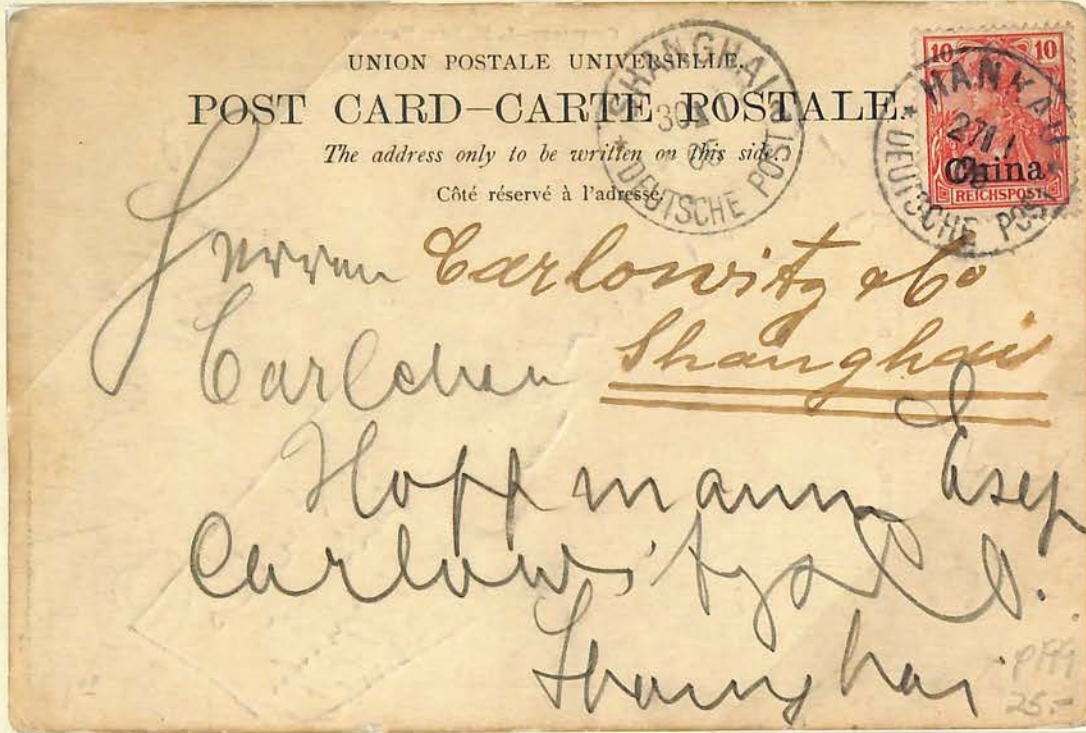 UNION POSTALE UNIVERSELLE.
POST CARD–CARTE POSTALE.
The address only to be written on this side.
Côté réservé à l'adresse.
SHANGHAI
DEUTSCHE POST
10 10
China
REICHSPOST
HANKAU
DEUTSCHE POST
Herren Carlowitz & Co
Shanghai
Carlchen
Hoffmann Esq
Carlowitz & Co.
Shanghai
25.-